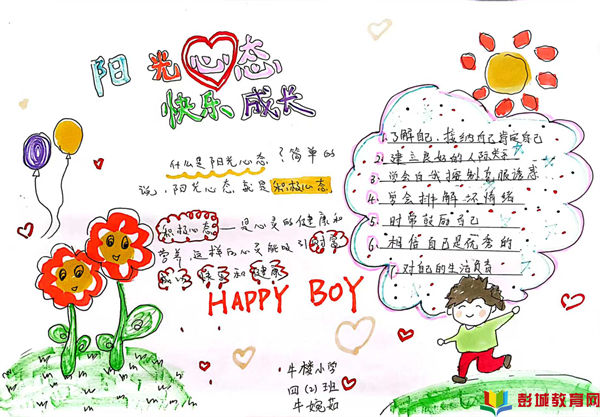 阳光心态
快乐成长
什么是阳光心态？简单的
说，阳光心态就是积极心态
积极心态一是心灵的健康和
营养，这样的心灵能吸引财富
成功、快乐和健康
HAPPY BOY
1、了解自己，接纳自己肯定自己
2、建立良好的人际关系
3、学会自我控制克服诱惑
4、学会排解坏情绪
5、时常鼓励自己
6、相信自己是优秀的
7、对自己的生活负责
牛楼小学
四（2）班
牛婉茹
彭城教育网